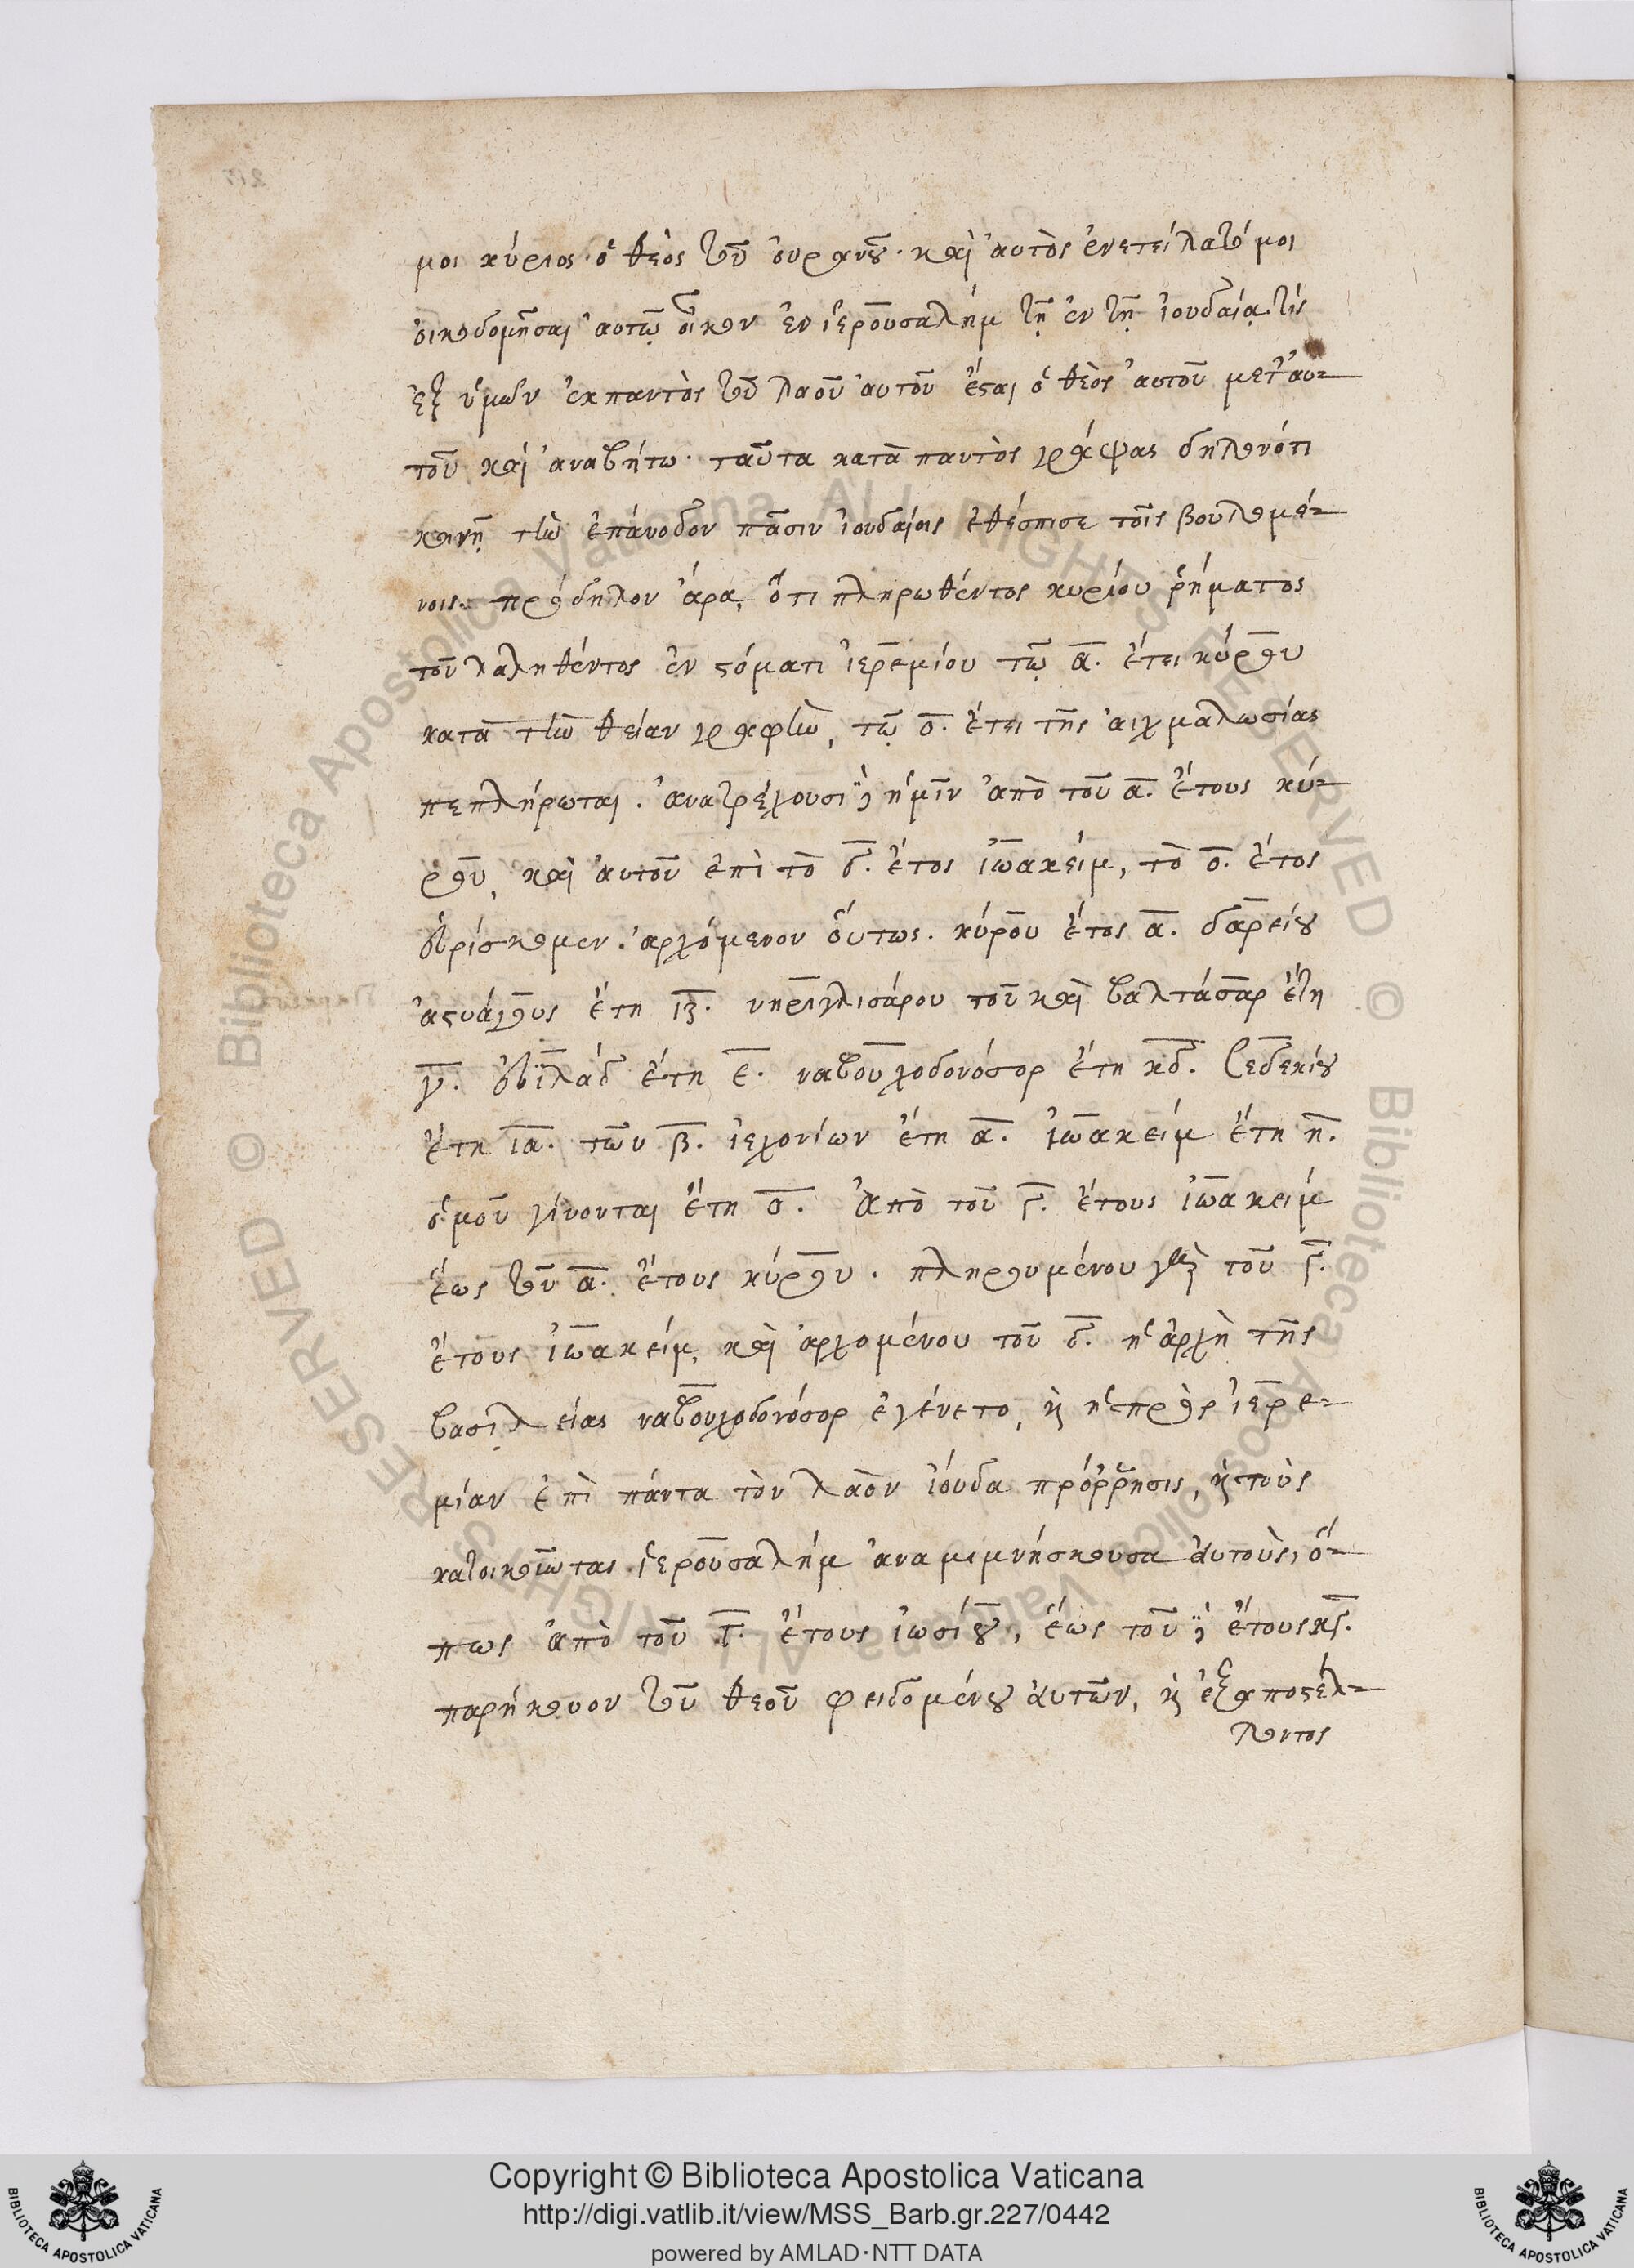 μοι κύριος ὁ θεὸς τοῦ οὐρανοῦ· καὶ αὐτὸς ἐνετείλατό μοι
οἰκοδομῆσαι αὐτῷ οἶκον ἐν ἱερουσαλήμ τῇ ἐν τῇ ἰουδαίᾳ· τίς
ἐξ ὑμῶν ἐκ παντὸς τοῦ λαοῦ αὐτοῦ ἔσται ὁ θεὸς αὐτοῦ μετ' αυ-
τοῦ καὶ ἀναβήτω· ταῦτα κατὰ παντὸς γράψας δηλονότι
κοινῇ τὴν ἐπάνοδον πᾶσιν ἰουδαίοις ἐθέσπισε τοῖς βουλομέ-
νοις. πρόδηλον ἄρα, ὅτι πληρωθέντος κυρίου ῥήματος
τοῦ λαληθέντος ἐν στόματι ἱερεμίου τῷ α. ἔτει κύρου
κατὰ τὴν θείαν γραφὴν, τῷ ο. ἔτει τῆς αἰχμαλωσίας
πεπλήρωται. ἀνατρέχουσι δὲ ἡμῖν ἀπὸ τοῦ α. ἔτους κύ-
ρου, καὶ αὐτοῦ ἐπὶ τὸ δ. ἔτος ἰωακείμ, τὸ ο. ἔτος
εὑρίσκομεν. ἀρχόμενον οὕτως. κύρου ἔτος α. δαρείου
ἀστυάγους ἔτη ιζ. νηριγλισάρου τοῦ καὶ βαλτάσαρ ἔτη
γ. εὐϊλάδ ἔτη ε. ναβουχοδονόσορ ἔτη κδ. ζεδεκίου
ἔτη ια. τῶν β. ἰεχονίων ἔτη α. ἰωακείμ ἔτη η.
ὁμοῦ γίνονται ἔτη ο. ἀπὸ τοῦ γ. ἔτους ἰωακείμ
ἕως τοῦ α. ἔτους κύρου. πληρουμένου γὰρ τοῦ γ.
ἔτους ἰωακείμ, καὶ ἀρχομένου τοῦ δ. ἡ ἀρχὴ τῆς
βασιλείας ναβουχοδονόσορ ἐγένετο, καὶ ἡ πρὸς ἱερε-
μίαν ἐπὶ πάντα τὸν λαὸν ἰούδα πρόῤῥησις, καὶ τοὺς
κατοικοῦντας ἱερουσαλήμ ἀναμιμνήσκουσα αὐτοὺς, ὅ-
πως ἀπὸ τοῦ ιγ. ἔτους ἰωσίου, ἕως τοῦ δὲ ἔτους κγ.
παρήκουον τοῦ θεοῦ φειδομένου αὐτῶν, καὶ ἐξαποστέλ-
λοντος
Copyright © Biblioteca Apostolica Vaticana
http://digi.vatlib.it/view/MSS_Barb.gr.227/0442
powered by AMLAD·NTT DATA